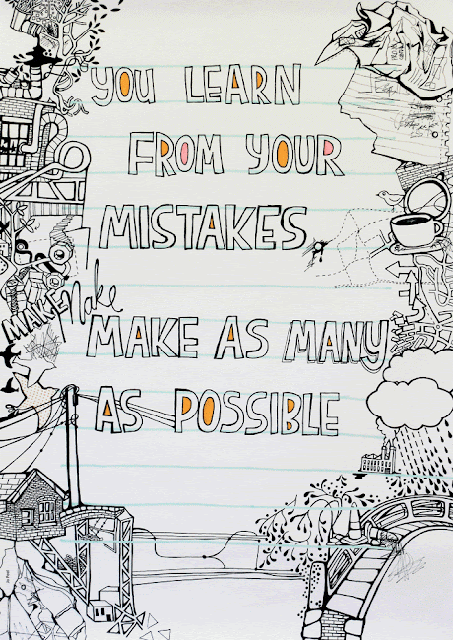 YOU LEARN
FROM YOUR
MISTAKES
make
MAKE
MAKE AS MANY
AS POSSIBLE